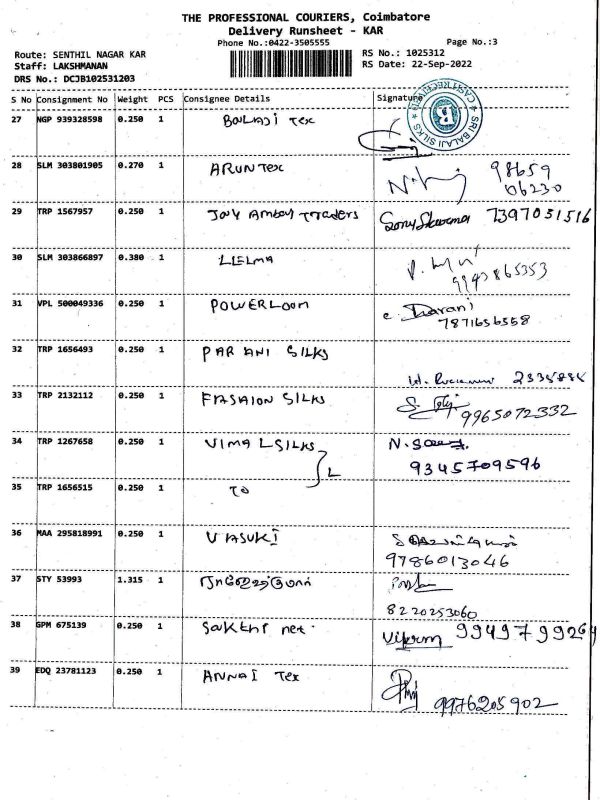 THE PROFESSIONAL COURIERS, Coimbatore
Delivery Runsheet - KAR
Phone No.:0422-3505555
Page No.:3
Route: SENTHIL NAGAR KAR
RS No.: 1025312
Staff: LAKSHMANAN
RS Date: 22-Sep-2022
DRS No.: DCJB102531203
S No Consignment No Weight PCS Consignee Details Signature
SRI BALAJI SILKS
27 NGP 939328598 0.250 1 Balaji Tex
28 SLM 303801905 0.270 1 ARUN Tex 98659
06230
29 TRP 1567957 0.250 1 Jay Ambay Traders Sony Sharma 7397051516
30 SLM 303866897 0.380 1 LELMA
9943865353
31 VPL 500049336 0.250 1 POWERLOOM c. Dharani
7871656558
32 TRP 1656493 0.250 1 PARANI SILKS
2335884
33 TRP 2132112 0.250 1 FASAION SILKS
9965072332
34 TRP 1267658 0.250 1 VIMAL SILKS
9345709596
35 TRP 1656515 0.250 1 TO L
36 MAA 295818991 0.250 1 VASUKI
9786013046
37 STY 53993 1.315 1
8220253060
38 GPM 675139 0.250 1 Sakthi net Vikram 9949799264
39 EDQ 23781123 0.250 1 ANNAI Tex
9976205902